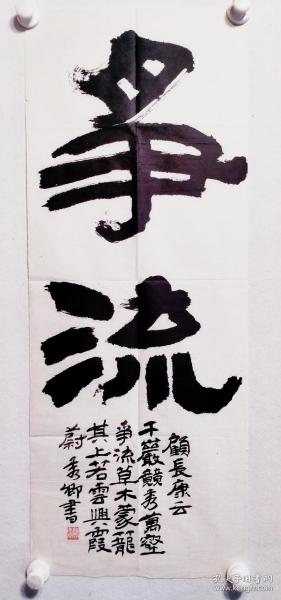 爭
流
顧長康云
千巖競秀萬壑
爭流草木蒙籠
其上若雲興霞
蔚 秀卿書
孔夫子旧书网